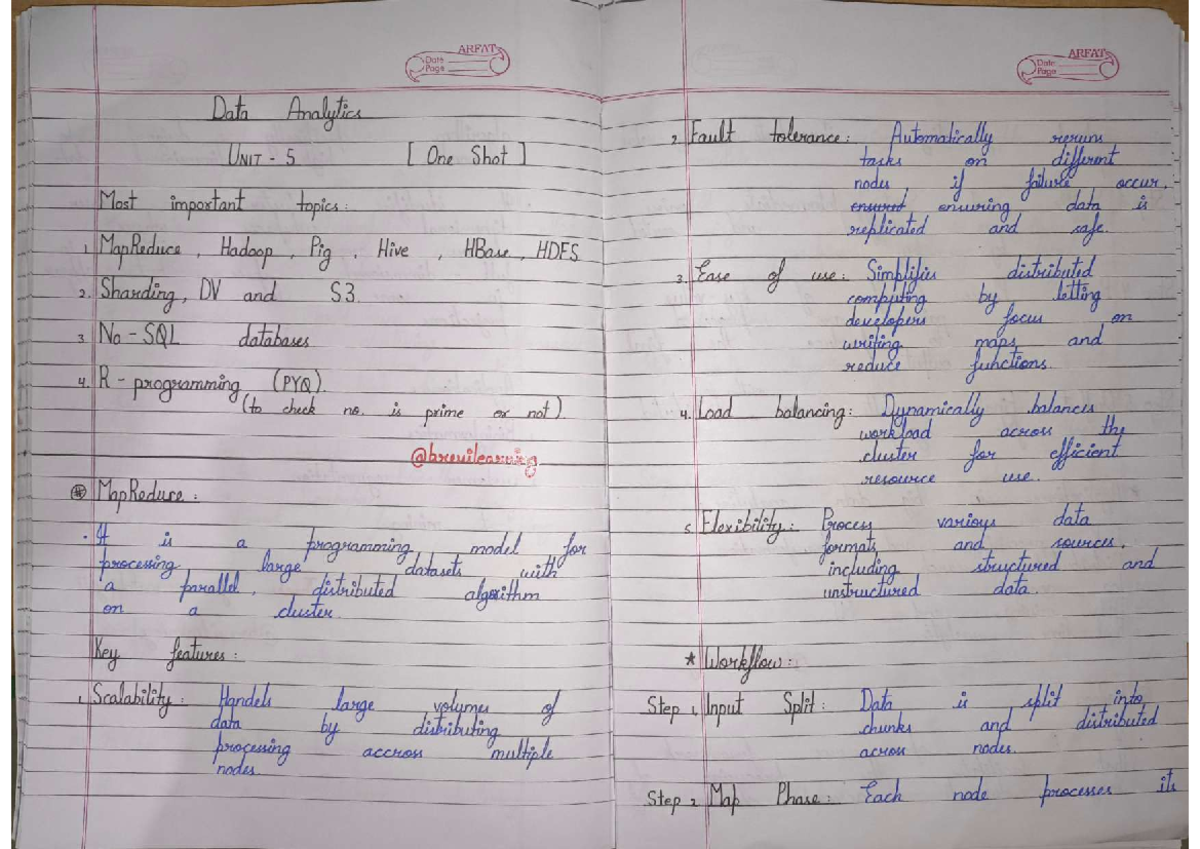 ARFAT
Date
Page
Data Analytics
UNIT - 5 [ One Shot ]
Most important topics :
1. MapReduce , Hadoop , Pig , Hive , HBase , HDFS
2. Sharding , DV and S3.
3. No - SQL databases
4. R - programming (PYQ).
(to check no. is prime or not)
@breuilearning
* MapReduce :
. It is a programming model for
processing large datasets with
a parallel , distributed algorithm
on a cluster.
Key features :
1. Scalability : Handels large volumes of
data by distributing
processing accross multiple
nodes.
ARFAT
Date
Page
2. Fault tolerance : Automatically reruns
tasks on different
nodes , if failure occur.
ensured ensuring data is
replicated and safe.
3. Ease of use : Simplifies distributed
computing by letting
developers focus on
writing maps and
reduce functions.
4. Load balancing : Dynamically balances
workload across the
cluster for efficient
resource use.
5. Flexibility : Process various data
formats and sources ,
including structured and
unstructured data.
* Workflow :
Step 1. Input Split : Data is split into
chunks and distributed
across nodes.
Step 2. Map Phase : Each node processes its